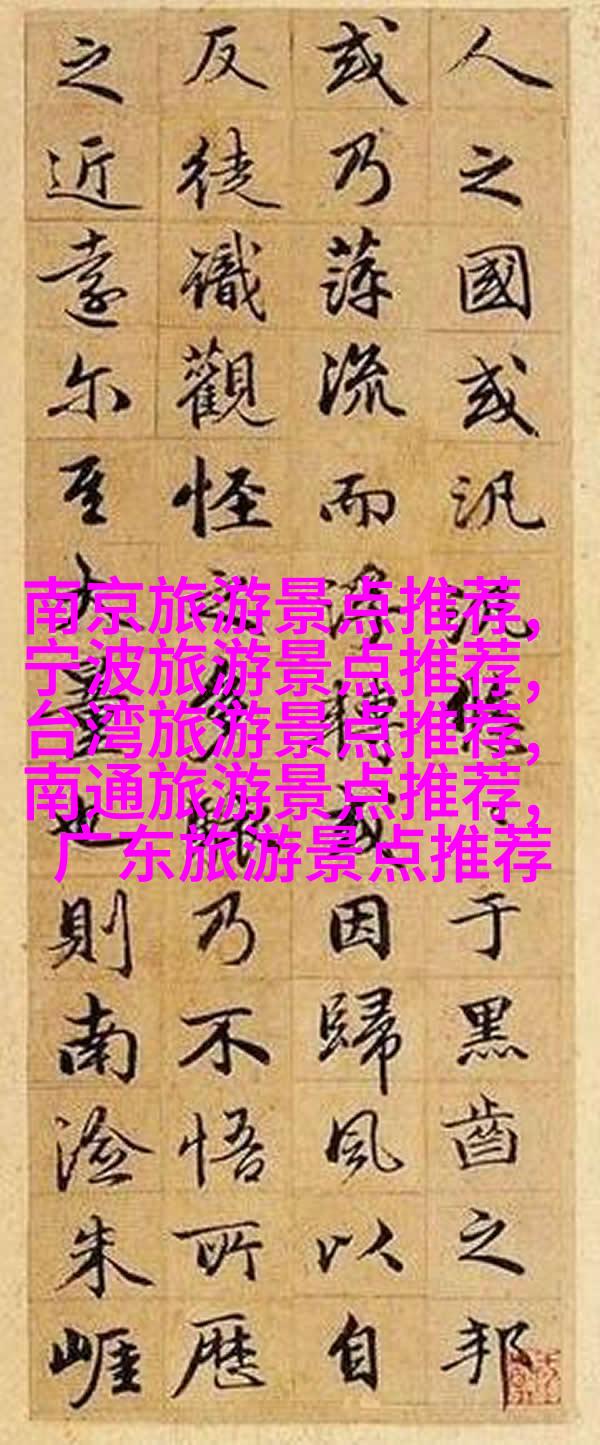 人之國或汎汎悠于黑齒之邦
或乃萍流而浮轉或因歸風以自
反徒識觀怪之多駭乃不悟所歷
之近遠尔至大量也則南澰朱崕
南京旅游景点推荐,
宁波旅游景点推荐,
台湾旅游景点推荐,
南通旅游景点推荐,
广东旅游景点推荐